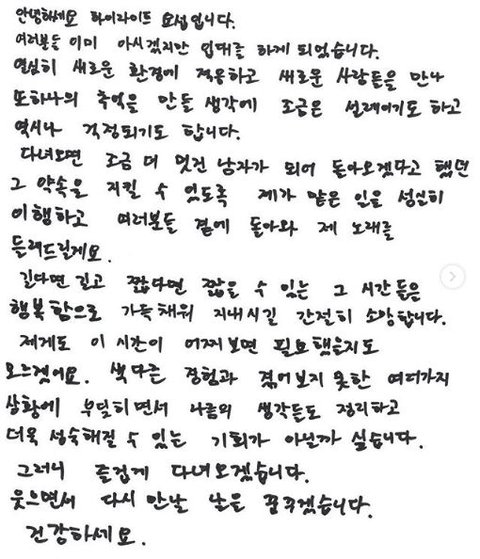 안녕하세요 하이라이트 요섭입니다.
여러분들 이미 아시겠지만 입대를 하게 되었습니다.
열심히 새로운 환경에 적응하고 새로운 사람들을 만나
또하나의 추억을 만들 생각에 조금은 설레이기도 하고
역시나 걱정되기도 합니다.
다녀오면 조금 더 멋진 남자가 되어 돌아오겠다고 했던
그 약속을 지킬 수 있도록 제가 맡은 일을 성실히
이행하고 여러분들 곁에 돌아와 제 노래를
들려드릴게요.
길다면 길고 짧다면 짧을 수 있는 그 시간들은
행복함으로 가득채워 지내시길 간절히 소망합니다.
제게도 이 시간이 어찌보면 필요했을지도
모르겠어요. 색다른 경험과 겪어보지 못한 여러가지
상황에 부딪히면서 나름의 생각들도 정리하고
더욱 성숙해질 수 있는 기회가 아닐까 싶습니다.
그러니 즐겁게 다녀오겠습니다.
웃으면서 다시 만날 날을 꿈꾸겠습니다.
건강하세요.